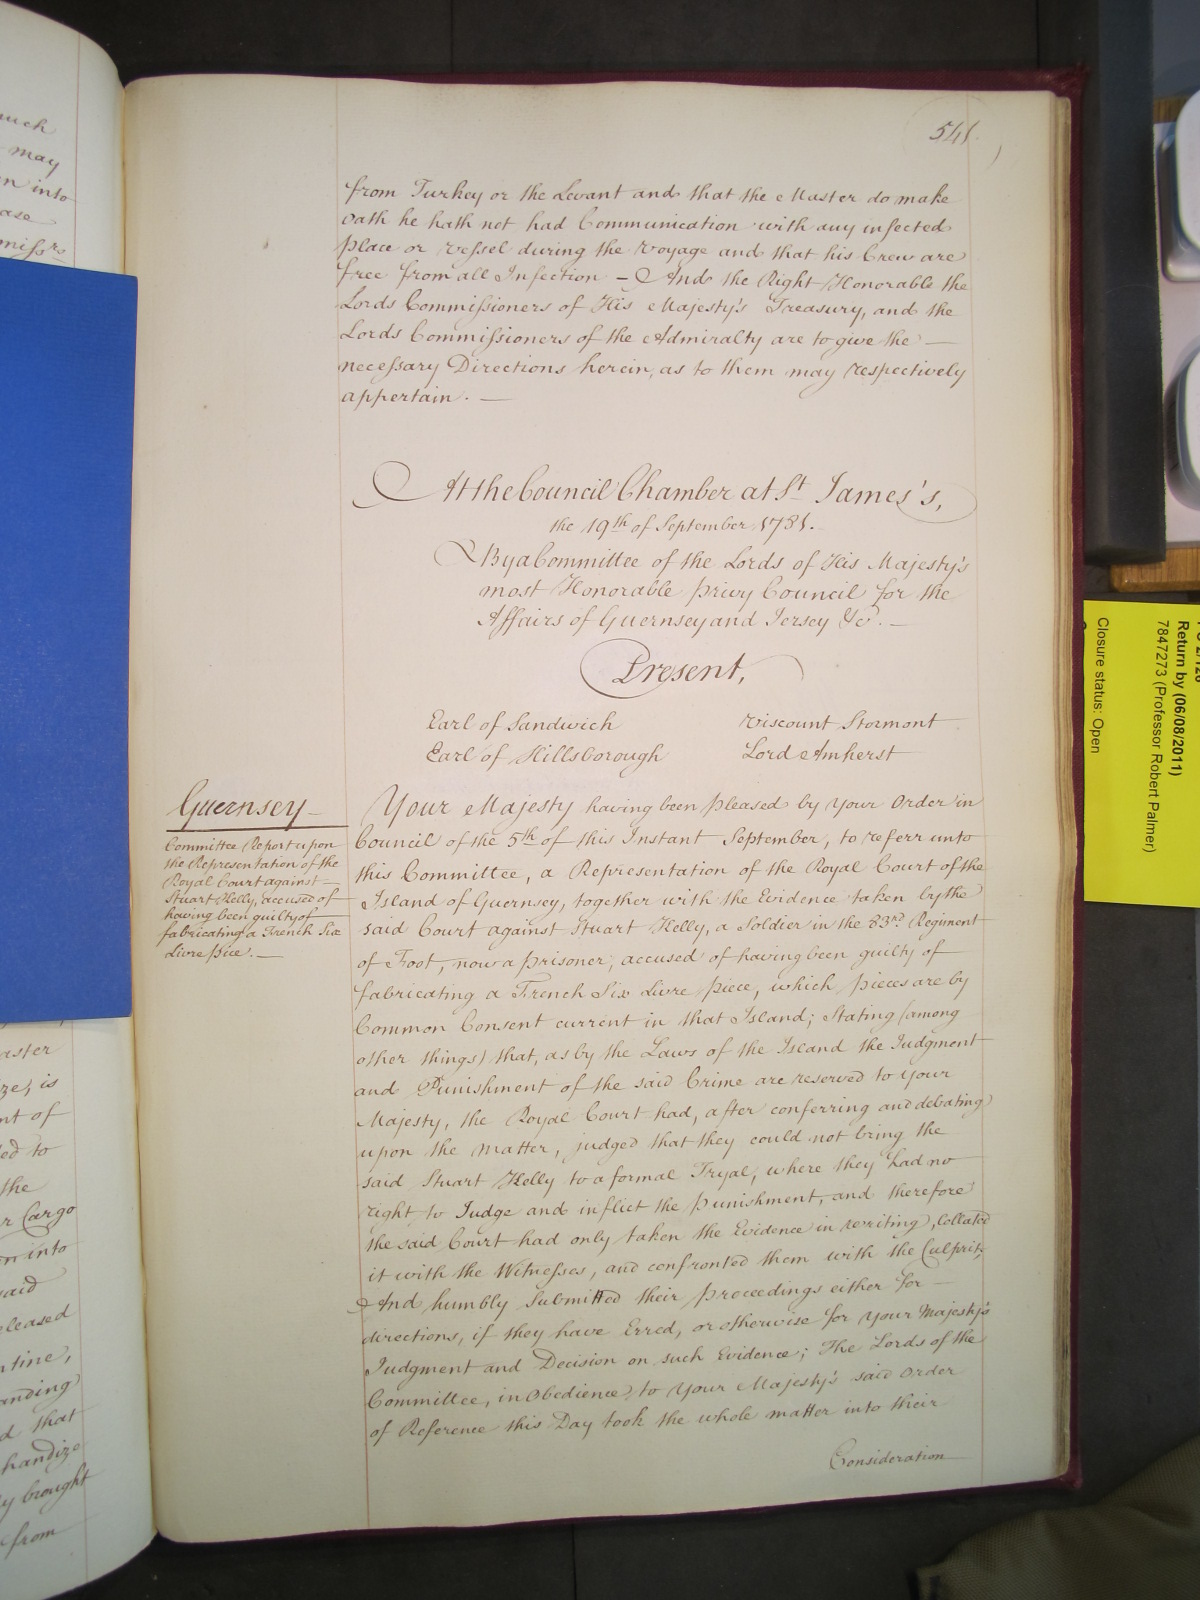 541.
from Turkey or the Levant and that the Master do make
Oath he hath not had Communication with any infected
Place or Vessel during the Voyage and that his Crew are
free from all Infection – And the Right Honorable the
Lords Commissioners of His Majesty's Treasury, and the
Lords Commissioners of the Admiralty are to give the —
necessary Directions herein, as to them may respectively
appertain. —
At the Council Chamber at St James's,
the 19th of September 1781.
By a Committee of the Lords of His Majesty's
most Honorable Privy Council for the
Affairs of Guernsey and Jersey &c. —
Present,
Earl of Sandwich Viscount Stormont
Earl of Hillsborough Lord Amherst
Guernsey —
Committee Report upon
the Representation of the
Royal Court against —
Stuart Kelly, accused of
having been guilty of
fabricating a French Six
Livre piece. —
Your Majesty having been pleased by Your Order in
Council of the 5th of this Instant September, to referr unto
this Committee, a Representation of the Royal Court of the
Island of Guernsey, together with the Evidence taken by the
said Court against Stuart Kelly, a Soldier in the 83rd Regiment
of Foot, now a prisoner, accused of having been guilty of
fabricating a French Six Livre piece, which pieces are by
Common Consent current in that Island; Stating (among
other things) that, as by the Laws of the Island the Judgment
and Punishment of the said Crime are reserved to Your
Majesty, the Royal Court had, after conferring and debating
upon the Matter, judged that they could not bring the
said Stuart Kelly to a formal Tryal, where they had no
right to Judge and inflict the Punishment, and therefore
the said Court had only taken the Evidence in writing, Collated
it with the Witnesses, and confronted them with the Culprit;
And humbly Submitted their proceedings either for —
directions, if they have Erred, or otherwise for Your Majesty's
Judgment and Decision on such Evidence; The Lords of the
Committee, in Obedience to Your Majesty's said Order
of Reference this Day took the whole matter into their
Consideration
uch
may
n into
ase
miss rs
aster
ze, is
nt of
ed to
the
r Cargo
n into
said
eleased
ntine,
anding
d that
handize
y brought
from
Return by (06/08/2011)
7847273 (Professor Robert Palmer)
Closure status: Open